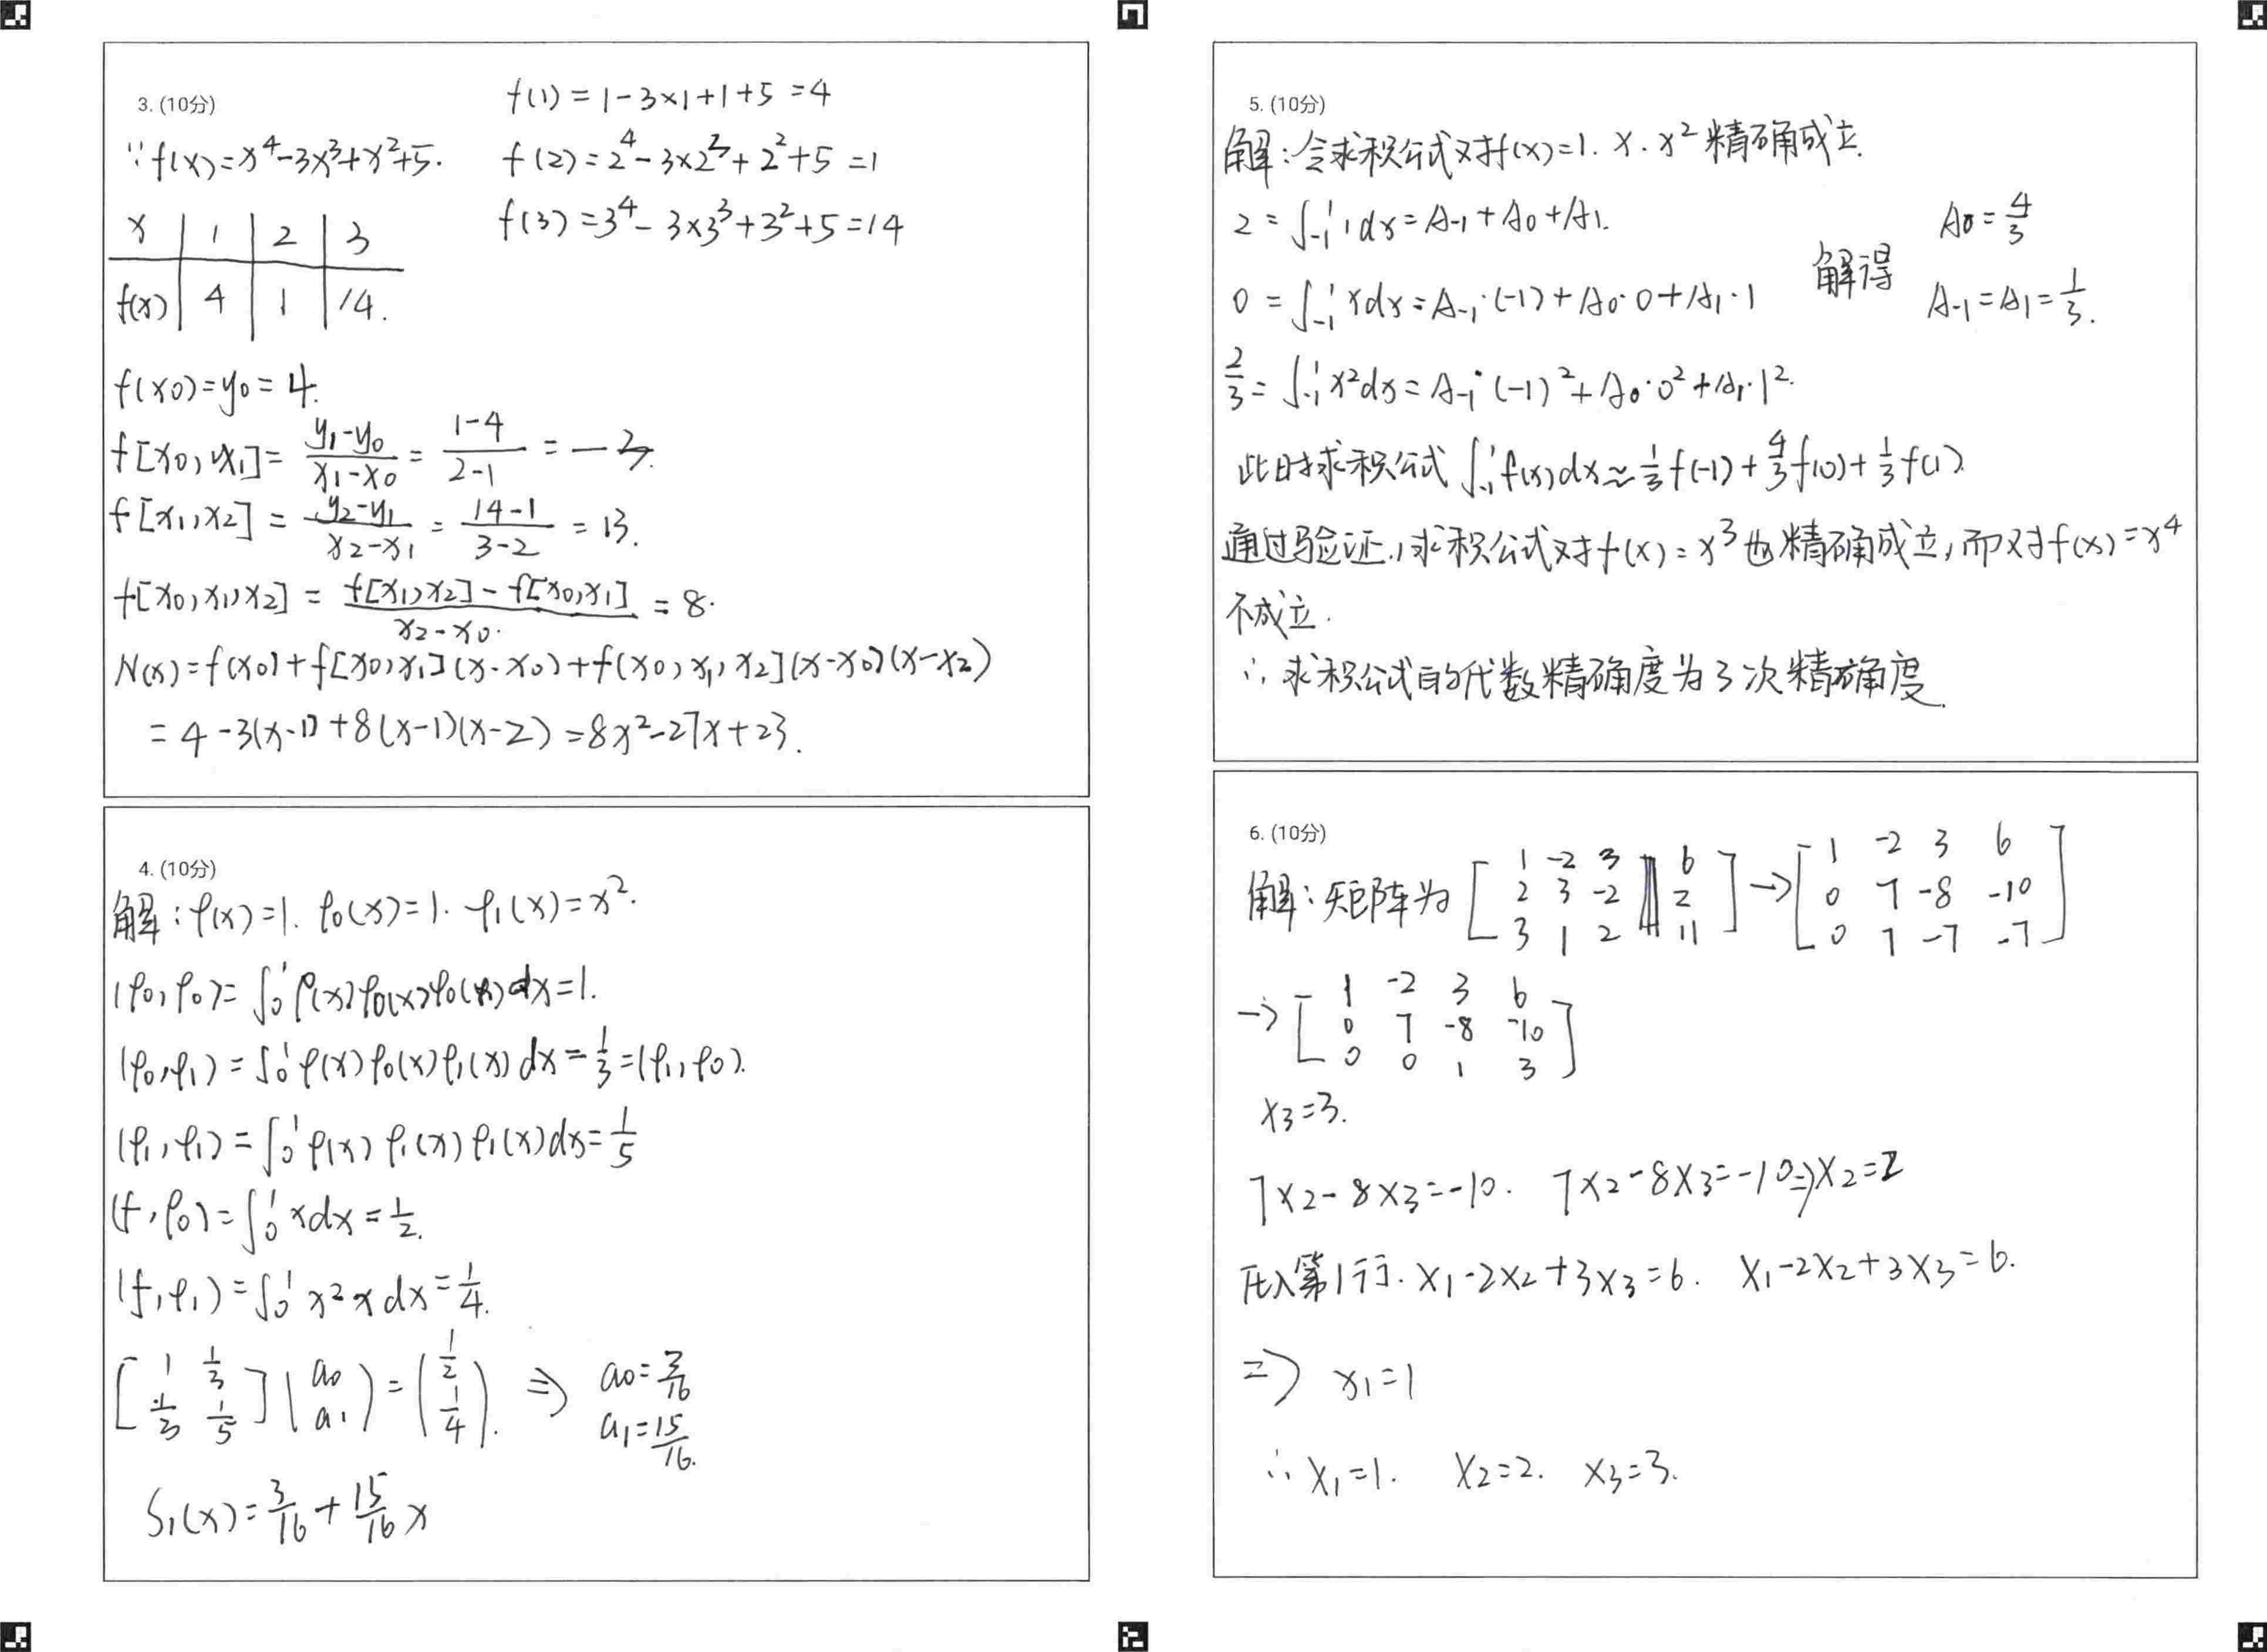 3. (10分)
f(1) = 1-3×1+1+5 = 4
∵ f(x)=x⁴-3x³+x²+5.
f(2)=2⁴-3×2³+2²+5=1
f(3)=3⁴-3×3³+3²+5=14
x | 1 | 2 | 3
f(x) | 4 | 1 | 14.
f(x0)=y0=4.
f[x0,x1]= (y1-y0)/(x1-x0) = (1-4)/(2-1) = -3.
f[x1,x2] = (y2-y1)/(x2-x1) = (14-1)/(3-2) = 13.
f[x0,x1,x2] = (f[x1,x2]-f[x0,x1])/(x2-x0) = 8.
N(x)=f(x0)+f[x0,x1](x-x0)+f(x0,x1,x2](x-x0)(x-x2)
= 4-3(x-1)+8(x-1)(x-2)=8x²-27x+23.
4. (10分)
解:ρ(x)=1. φ0(x)=1. φ1(x)=x².
(φ0,φ0)=∫₀¹ρ(x)φ0(x)φ0(x)dx=1.
(φ0,φ1)=∫₀¹ρ(x)φ0(x)φ1(x)dx=1/3=(φ1,φ0).
(φ1,φ1)=∫₀¹ρ(x)φ1(x)φ1(x)dx=1/5
(f,φ0)=∫₀¹xdx=1/2.
(f,φ1)=∫₀¹x²xdx=1/4.
[1 1/3; 1/3 1/5](a0; a1)=(1/2; 1/4). ⇒ a0=3/16 a1=15/16.
S1(x)=3/16+15/16x
5. (10分)
解:令求积公式对f(x)=1. x. x²精确成立.
2=∫₋₁¹1dx=A-1+A0+A1.
0=∫₋₁¹xdx=A-1·(-1)+A0·0+A1·1 解得 A0=4/3 A-1=A1=1/3.
2/3=∫₋₁¹x²dx=A-1·(-1)²+A0·0²+A1·1².
此时求积公式∫₋₁¹f(x)dx≈1/3f(-1)+4/3f(0)+1/3f(1).
通过验证,求积公式对f(x)=x³也精确成立,而对f(x)=x⁴
不成立.
∴求积公式的代数精确度为3次精确度.
6. (10分)
解:矩阵为[1 -2 3 | 6; 2 3 -2 | 2; 3 1 2 | 11]→[1 -2 3 6; 0 7 -8 -10; 0 7 -7 -7]
→[1 -2 3 6; 0 7 -8 -10; 0 0 1 3]
x3=3.
7x2-8x3=-10. 7x2-8x3=-10⇒x2=2
代入第1行. x1-2x2+3x3=6. x1-2x2+3x3=6.
⇒ x1=1
∴x1=1. x2=2. x3=3.